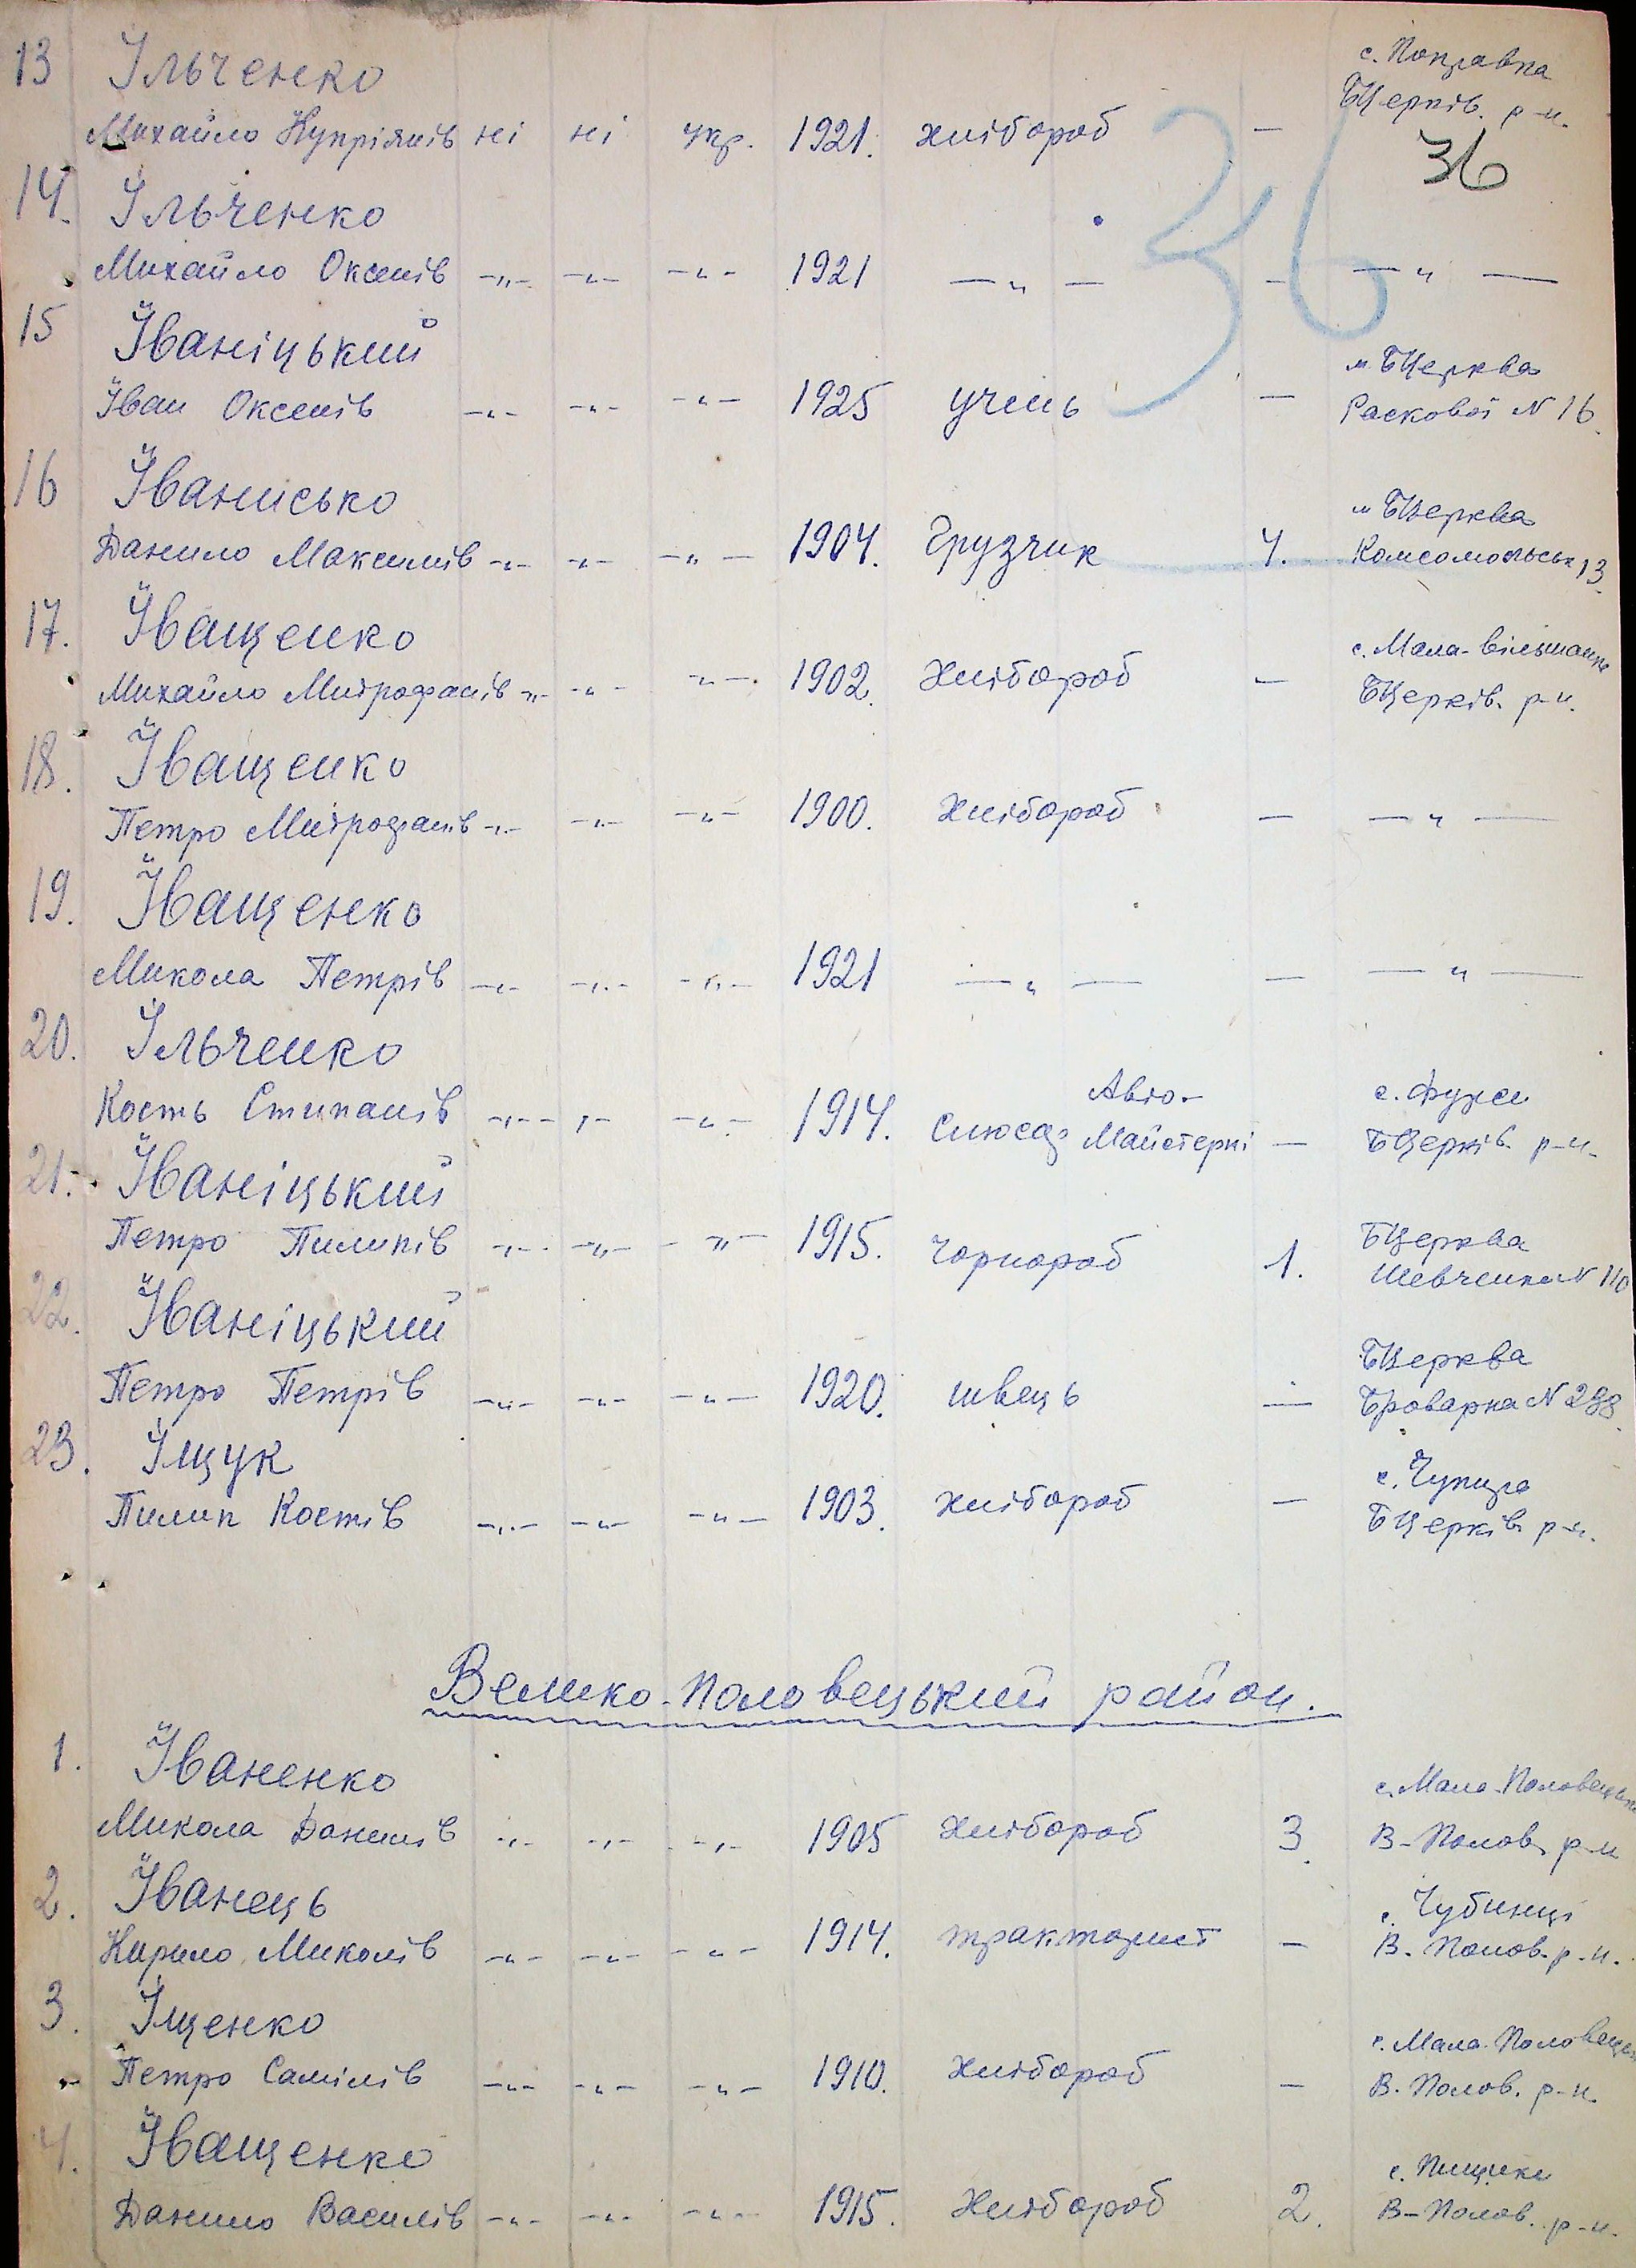 с. Поправка
13 Ільченко БЦерків. р-н.
Михайло Купріянів ні ні укр. 1921. хлібороб —
36
36
14. Ільченко
Михайло Оксенів -„- -„- -„- 1921 — „ — - — „ —
15 Іваніцький м БЦерква
Іван Оксенів -„- -„- -„- 1925 учень — Раскової N 16.
16 Іванисько м БЦерква
Данило Максимів -„- -„- -„- 1904. Грузчик 4. Комсомольськ 13.
17. Іващенко с. Мала-Вільшанка
Михайло Митрофанів -„- -„- -„- 1902. Хлібороб — БЦерків. р-н.
18. Іващенко
Петро Митрофанів -„- -„- -„- 1900. Хлібороб — — „ —
19. Іващенко
Микола Петрів -„- -„- -„- 1921 — „ — — — „ —
20. Ільченко
Кость Степанів -„- -„- -„- 1914. Слюсар Авто- Майстерні — с. Фурси БЦерків. р-н.
21. Іваніцький
Петро Пилипів -„- -„- -„- 1915. Чорнороб 1. БЦерква Шевченка N 110
22. Іваніцький БЦерква
Петро Петрів -„- -„- -„- 1920. швець — Броварна N 298.
23. Іщук с. Чупира
Пилип Костів -„- -„- -„- 1903. хлібороб — БЦерків р-н.
Велико-Половецький район.
1. Іваненко с. Мало-Половецьке
Микола Данилів -„- -„- -„- 1905 Хлібороб 3. В-Полов. р-н
2. Іванець с. Чубинці
Кирило Миколів -„- -„- -„- 1914. тракторист — В. Полов. р-н.
3. Іщенко с. Мала-Половецьк
Петро Самілів -„- -„- -„- 1910. Хлібороб — В. Полов. р-н.
4. Іващенко с. Пищики
Данило Василів -„- -„- -„- 1915. Хлібороб 2. В-Полов. р-н.